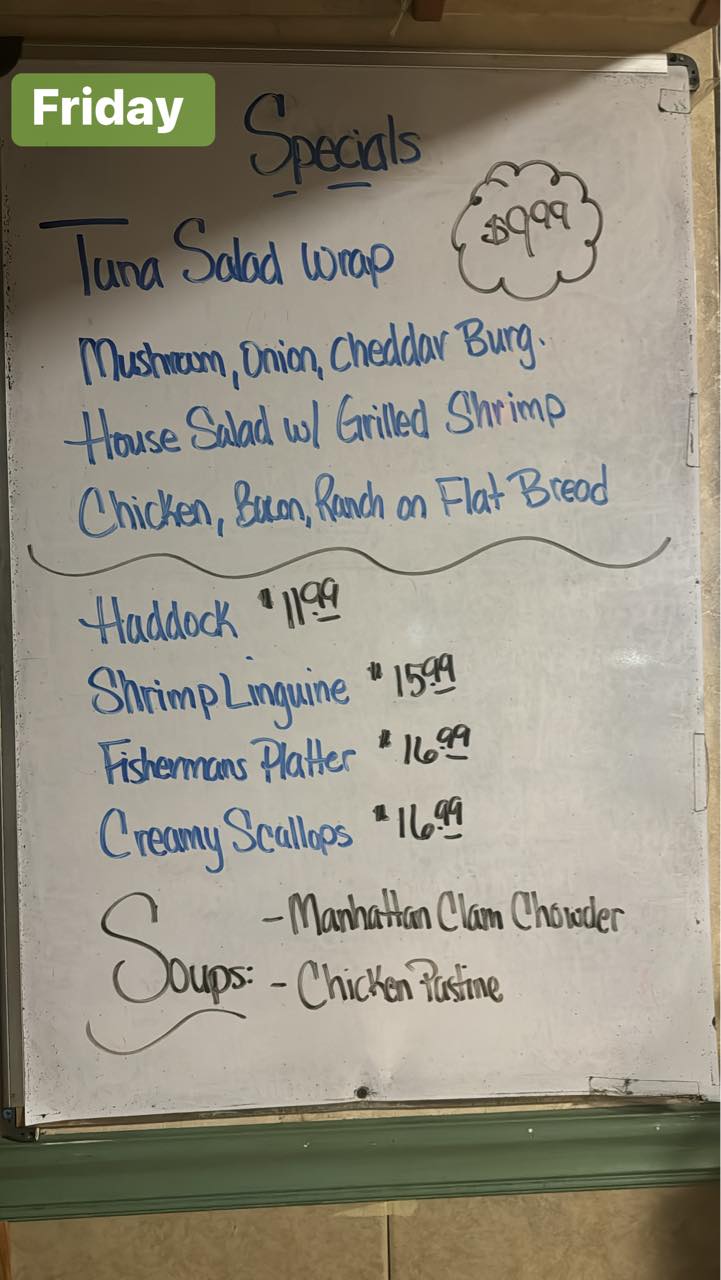 Friday
Specials
$9.99
Tuna Salad Wrap
Mushroom, Onion, Cheddar Burg.
House Salad w/ Grilled Shrimp
Chicken, Bacon, Ranch on Flat Bread
Haddock $11.99
Shrimp Linguine $15.99
Fishermans Platter $16.99
Creamy Scallops $16.99
Soups:
- Manhattan Clam Chowder
- Chicken Pastine